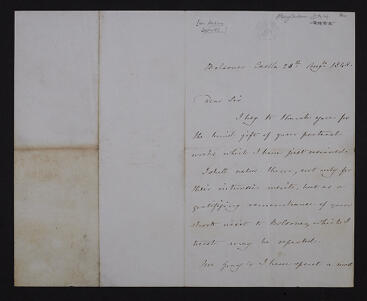 Bolsover Castle 24th Augt. 1848.
Dear Sir
I beg to thank you for
the kind gift of your poetical
works which I have just received.
I shall value them, not only for
their intrinsic merits, but as a
gratifying remembrance of your
short visit to Bolsover, which I
trust may be repeated.
I have spent a most